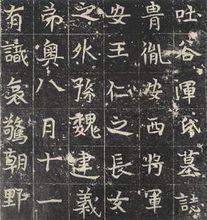 吐谷渾氏墓誌
胄胤安西將軍
安王仁之長女
之外孫魏建義
弟粤八月十一
有識哀驚朝野